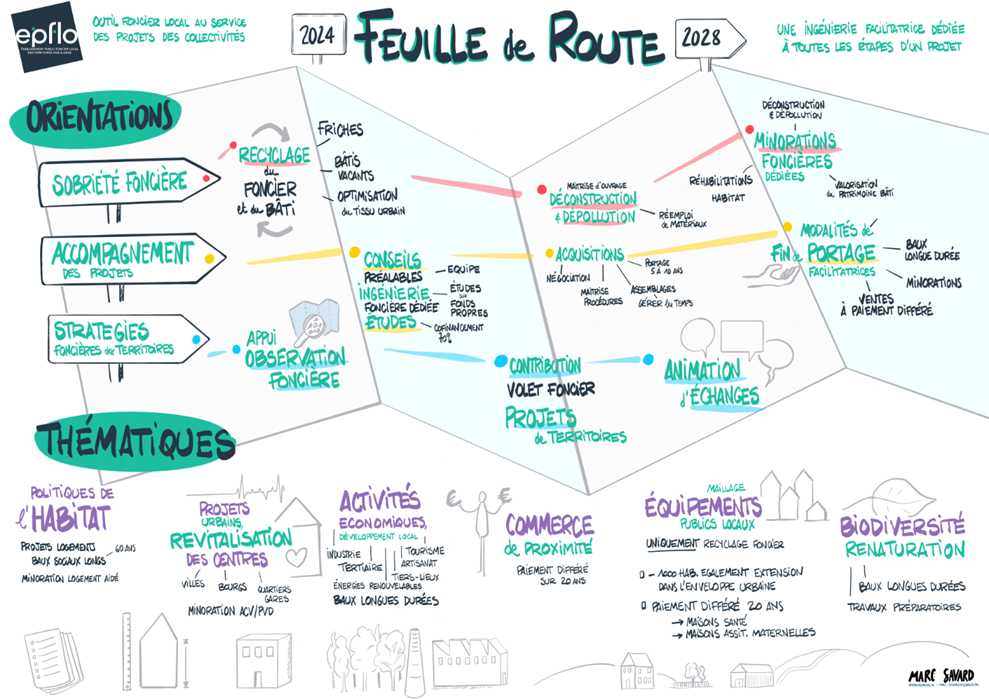 epflo
ÉTABLISSEMENT PUBLIC FONCIER LOCAL
DES TERRITOIRES OISE & AISNE
OUTIL FONCIER LOCAL AU SERVICE
DES PROJETS DES COLLECTIVITÉS
2024
FEUILLE de ROUTE
2028
UNE INGÉNIERIE FACILITATRICE DÉDIÉE
À TOUTES LES ÉTAPES D'UN PROJET
ORIENTATIONS
SOBRIÉTÉ FONCIÈRE
RECYCLAGE
du
FONCIER
et du BÂTI
FRICHES
BÂTIS
VACANTS
OPTIMISATION
du TISSU URBAIN
MAITRISE d'OUVRAGE
DÉCONSTRUCTION
& DÉPOLLUTION
RÉEMPLOI
de MATÉRIAUX
DÉCONSTRUCTION
& DÉPOLLUTION
MINORATIONS
FONCIÈRES
DÉDIÉES
RÉHABILITATIONS
HABITAT
VALORISATION
du PATRIMOINE BÂTI
ACCOMPAGNEMENT
DES PROJETS
CONSEILS
PRÉALABLES
INGÉNIERIE
FONCIÈRE DÉDIÉE
ÉTUDES
EQUIPE
ÉTUDES
sur
FONDS
PROPRES
COFINANCEMENT
70%
ACQUISITIONS
NÉGOCIATION
MAITRISE
PROCÉDURES
ASSEMBLAGES
GÉRER les TEMPS
PORTAGE
5 À 10 ANS
MODALITÉS de
FIN de PORTAGE
FACILITATRICES
BAUX
LONGUE DURÉE
MINORATIONS
VENTES
À PAIEMENT DIFFÉRÉ
STRATEGIES
FONCIÈRES des TERRITOIRES
APPUI
OBSERVATION
FONCIÈRE
CONTRIBUTION
VOLET FONCIER
PROJETS
de TERRITOIRES
ANIMATION
d'ÉCHANGES
THÉMATIQUES
POLITIQUES DE
l'HABITAT
PROJETS LOGEMENTS
BAUX SOCIAUX LONGS
60 ANS
MINORATION LOGEMENT AIDÉ
PROJETS
URBAINS,
REVITALISATION
DES CENTRES
VILLES
BOURGS
QUARTIERS
GARES
MINORATION ACV/PVD
ACTIVITÉS
ECONOMIQUES,
DÉVELOPPEMENT LOCAL
INDUSTRIE
TERTIAIRE
TOURISME
ARTISANAT
TIERS-LIEUX
ÉNERGIES RENOUVELABLES
BAUX LONGUES DURÉES
€
€
COMMERCE
de PROXIMITÉ
PAIEMENT DIFFÉRÉ
SUR 20 ANS
MAILLAGE
ÉQUIPEMENTS
PUBLICS LOCAUX
UNIQUEMENT RECYCLAGE FONCIER
- 1000 HAB. EGALEMENT EXTENSION
DANS L'ENVELOPPE URBAINE
PAIEMENT DIFFÉRÉ 20 ANS
→ MAISONS SANTÉ
→ MAISONS ASSIT. MATERNELLES
BIODIVERSITÉ
RENATURATION
BAUX LONGUES DURÉES
TRAVAUX PRÉPARATOIRES
MARC SAVARD